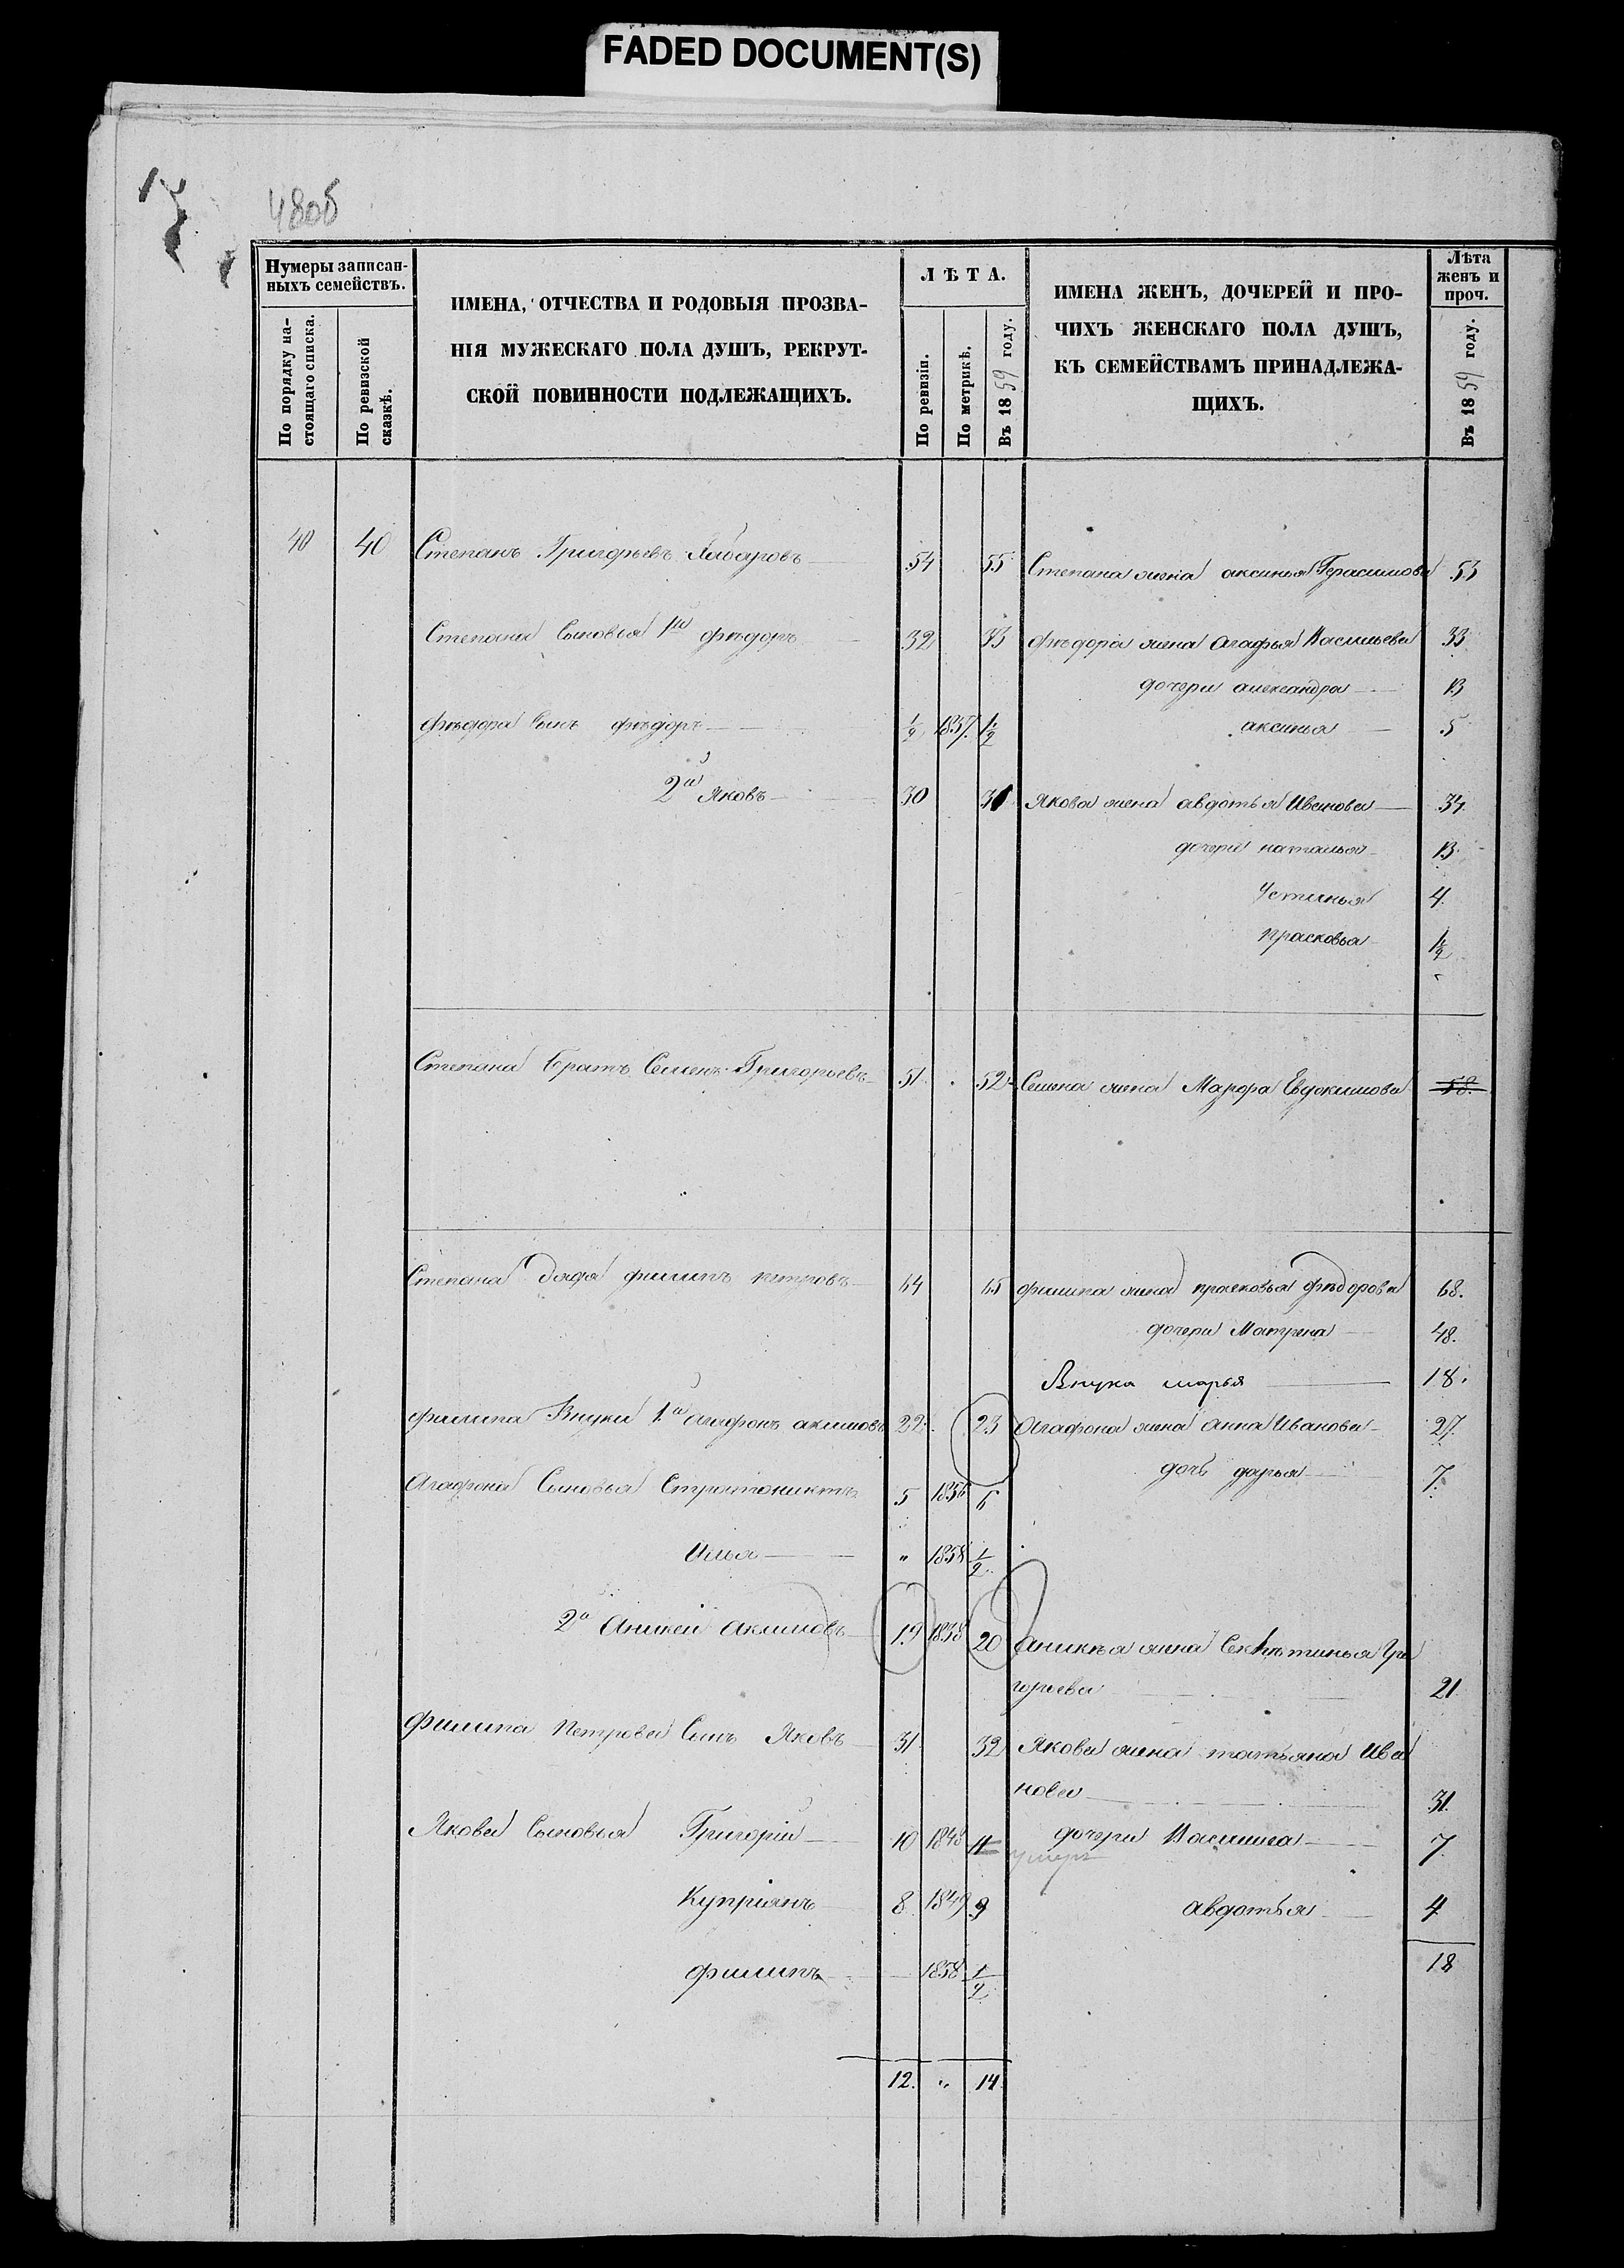 FADED DOCUMENT(S)
48об
Нумеры записан-
ныхъ семействъ.
По порядку на-
стоящаго списка.
По ревизской
сказкѣ.
ИМЕНА, ОТЧЕСТВА И РОДОВЫЯ ПРОЗВА-
НІЯ МУЖЕСКАГО ПОЛА ДУШЪ, РЕКРУТ-
СКОЙ ПОВИННОСТИ ПОДЛЕЖАЩИХЪ.
ЛѢТА.
По ревизіи.
По метрикѣ.
Въ 1859 году.
ИМЕНА ЖЕНЪ, ДОЧЕРЕЙ И ПРО-
ЧИХЪ ЖЕНСКАГО ПОЛА ДУШЪ,
КЪ СЕМЕЙСТВАМЪ ПРИНАДЛЕЖА-
ЩИХЪ.
Лѣта
женъ и
проч.
Въ 1859 году.
40 40 Степанъ Григорьевъ Хабаровъ 54 55 Степана жена аксинья Герасимова 53
Степана Сыновья 1й фѣдоръ 32 33 фѣдора жена Агафья Васильева 33
дочери александра 13
фѣдора Сынъ фѣдоръ 1/2 1857. 1 1/2 аксинья 5
2й Яковъ 30 31 Якова жена авдотья Иванова 34
дочери наталья 13
Устинья 4
прасковья 1/2
Степана братъ Семенъ Григорьевъ 51 52 Семена жена Марфа Евдокимова 58
Степана дядя филипъ петровъ 64 65 филипа жена прасковья фѣдорова 68.
дочери Матрена 48.
Внука марья 18.
филипа Внуки 1й агафонъ акимовъ 22 23 Агафона жена анна Иванова 27
дочь дарья 7
Агафона Сыновья Стратоникъ 5 1856 6
Илья " 1858 1/2
2й Аникей Акимовъ 19 1838 20 Аникѣя жена Гри
горьева 21
Филипа Петрова Сынъ Яковъ 31 32 Якова жена татьяна Ива
нова 31
Якова Сыновья Григорій 10 1848 11 умеръ дочери Василиса 7
Купріянъ 8 1849 9 авдотья 4
18
филипъ 1858 1/2
12. " 14